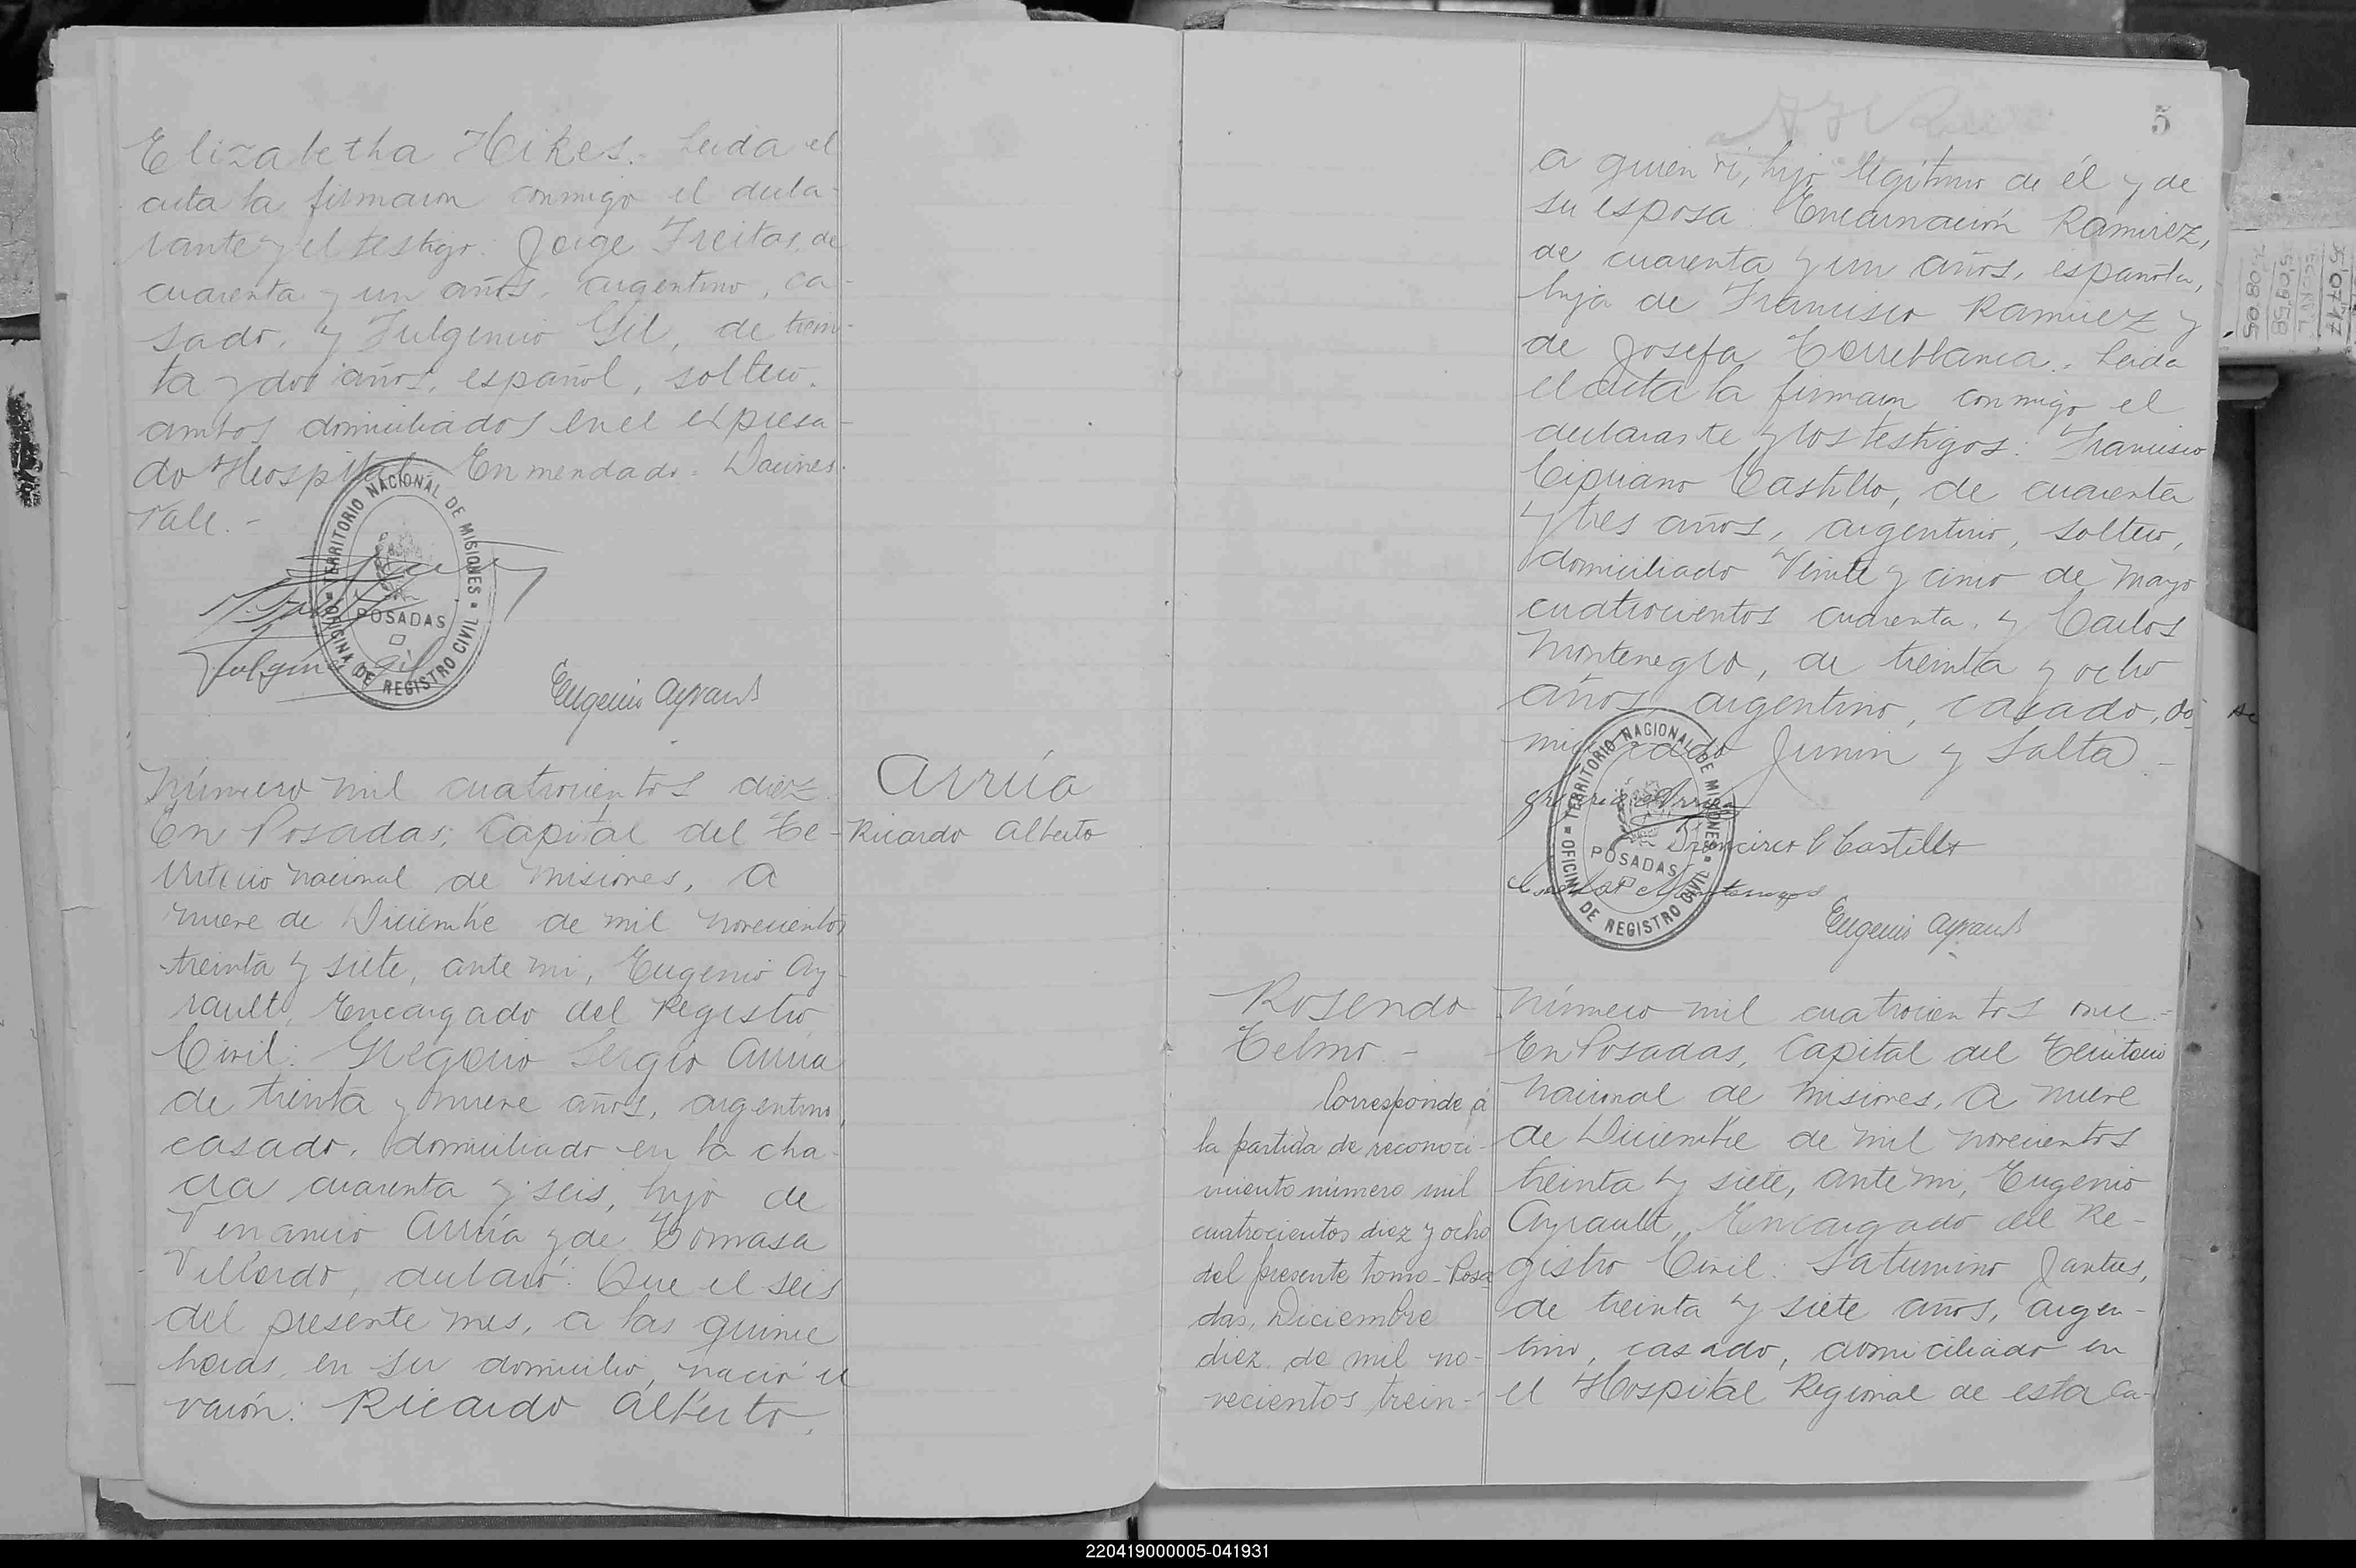 Elizabetha Hikes. Leida el
acta la firmaron conmigo el decla-
rante y el testigo: Jorge Freitas, de
cuarenta y un años, argentino, ca-
sado, y Fulgencio Gil, de trein-
ta y dos años, español, soltero,
ambos domiciliados en el expresa-
do Hospital. Enmendado:
Vale.-
TERRITORIO NACIONAL DE MISIONES
POSADAS
OFICINA DE REGISTRO CIVIL
Fulgencio Gil
Eugenio Ayrault
Número mil cuatrocientos diez
En Posadas, Capital del Te-
rritorio Nacional de Misiones, a
nueve de Diciembre de mil novecientos
treinta y siete, ante mi, Eugenio Ay-
rault, Encargado del Registro
Civil: Gregorio Sergio Arrúa
de treinta y nueve años, argentino,
casado, domiciliado en la cha-
cra cuarenta y seis, hijo de
Venancio Arrúa y de Tomasa
Villordo, declaró: Que el seis
del presente mes, a las quince
horas, en su domicilio, nació el
varón: Ricardo Alberto,
Arrúa
Ricardo Alberto
5
a quien vi, hijo legítimo de él y de
su esposa: Encarnación Ramirez,
de cuarenta y un años, española,
hija de Francisco Ramirez y
de Josefa Torreblanca. Leida
el acta la firmaron conmigo el
declarante y los testigos: Francisco
Cipriano Castillo, de cuarenta
y tres años, argentino, soltero,
domiciliado Veinte y cinco de Mayo
cuatrocientos cuarenta, y Carlos
Montenegro, de treinta y ocho
años, argentino, casado, do-
miciliado Junin y Salta.-
Gregorio S Arrúa
TERRITORIO NACIONAL DE MISIONES
POSADAS
OFICINA DE REGISTRO CIVIL
Francisco C Castillo
Carlos Montenegro
Eugenio Ayrault
Rosendo
Telmo.-
Corresponde á
la partida de reconoci-
miento número mil
cuatrocientos diez y ocho
del presente tomo - Posa-
das, Diciembre
diez de mil no-
vecientos trein-
Número mil cuatrocientos once.-
En Posadas, Capital del Territorio
Nacional de Misiones, a nueve
de Diciembre de mil novecientos
treinta y siete, ante mi, Eugenio
Ayrault, Encargado del Re-
gistro Civil: Saturnino
de treinta y siete años, argen-
tino, casado, domiciliado en
el Hospital Regional de esta Ca-
220419000005-041931